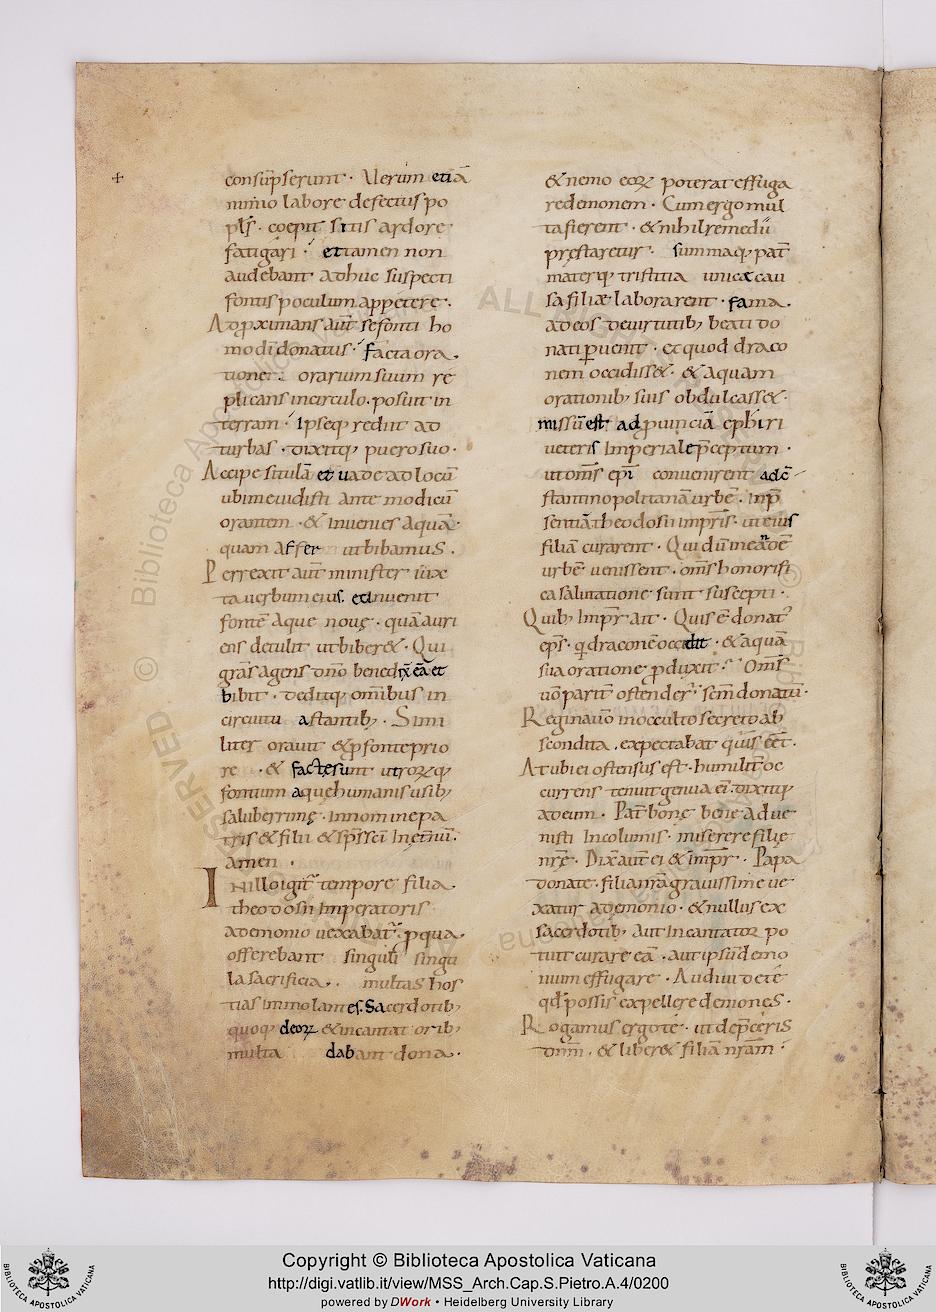 consūpserunt · Verum etiā
nimio labore defectus po
pl̄s · coepit sitis ardore
fatigari · et tamen non
audebant adhuc suspecti
fontis poculum appetere ·
Adp̱ximans aūt se fonti ho
modi donatus · facta ora
tione · orarium suum re
plicans in circulo · posuit in
terram · Ipseq; rediit ad
turbas · dixitq; puero suo ·
Accipe situlā et vade ad locū
ubi me vidisti ante modicū
orantem · & invenies aquā ·
quam affer ut bibamus ·
Perrexit aūt minister iuxta
ta verbum eius · et invenit
fontē aque nove · quā auri
ens detulit ut biber& · Qui
grās agens dn̄o benedix̄ eā et
bibit · deditq; omībus in
circuitu astantib; · Simi
liter oravit & p̱ fonte prio
re · & facte sunt utrorꝝq;
fontium aque humanis usib;
saluberrime · In nomine pa
tris & filii & sp̄s sc̄i in et̄nū ·
Amen ·
In illo igit̄ tempore filia
theodosii Imperatoris
a demonio vexabat̄ · p̱ qua
offerebant singuli singu
la sacrificia · multas hos
tias immolantes · Sacerdotib;
quoq; deorꝝ & incantatorib;
multa dabant dona ·
& nemo eorꝝ poterat effuga
re demonem · Cum ergo mul
ta fierent · & nihil remedii
prestaretur · summaq; pat̄
materq; tristitia unicæ cau
sa filiæ laborarent · fama
ad eos de virtutib; beati do
nati p̱venit · et quod draco
nem occidiss& · & aquam
orationib; suis obdulcass& ·
missū est ad p̱vinciā ephiri
veteris Imperiale p̄ceptum ·
ut om̄s ep̄i convenirent ad cō
stantinopolitanā urbē · In p̄
sentiā theodosii imp̄ris · ut eius
filiā curarent · Qui dū in eandē
urbē venissent · om̄s honorifi
ca salutatione sunt suscepti ·
Quib; Imp̄r ait · Quis ē donat᷒
ep̄s · q̄ draconē occidit · & aquā
sua oratione p̱duxit · Om̄s
vō parit̄ ostender̄ · sc̄m donatū ·
Regina vō in occulto secreto ab
scondita · expectabat quis eēt ·
At ubi ei ostensus est · humilit̄ oc
currens tenuit genua ei᷒ · dixitq;
ad eum · Pat̄ bone bene adve
nisti Incolumis · miserere filie
nr̄e · Dix̄ aūt ei & imp̄r · Papa
donate · filia nr̄a gravissime ve
xatur a demonio · & nullus ex
sacerdotib; aut Incantatorꝝ po
tuit curare eā · aut ipsū demo
nium effugare · Audivi de te
qd̄ possis expellere demones ·
Rogamus ergo te · ut dep̄ceris
dn̄m · & liber& filiā nr̄am ·
Copyright © Biblioteca Apostolica Vaticana
http://digi.vatlib.it/view/MSS_Arch.Cap.S.Pietro.A.4/0200
powered by DWork • Heidelberg University Library